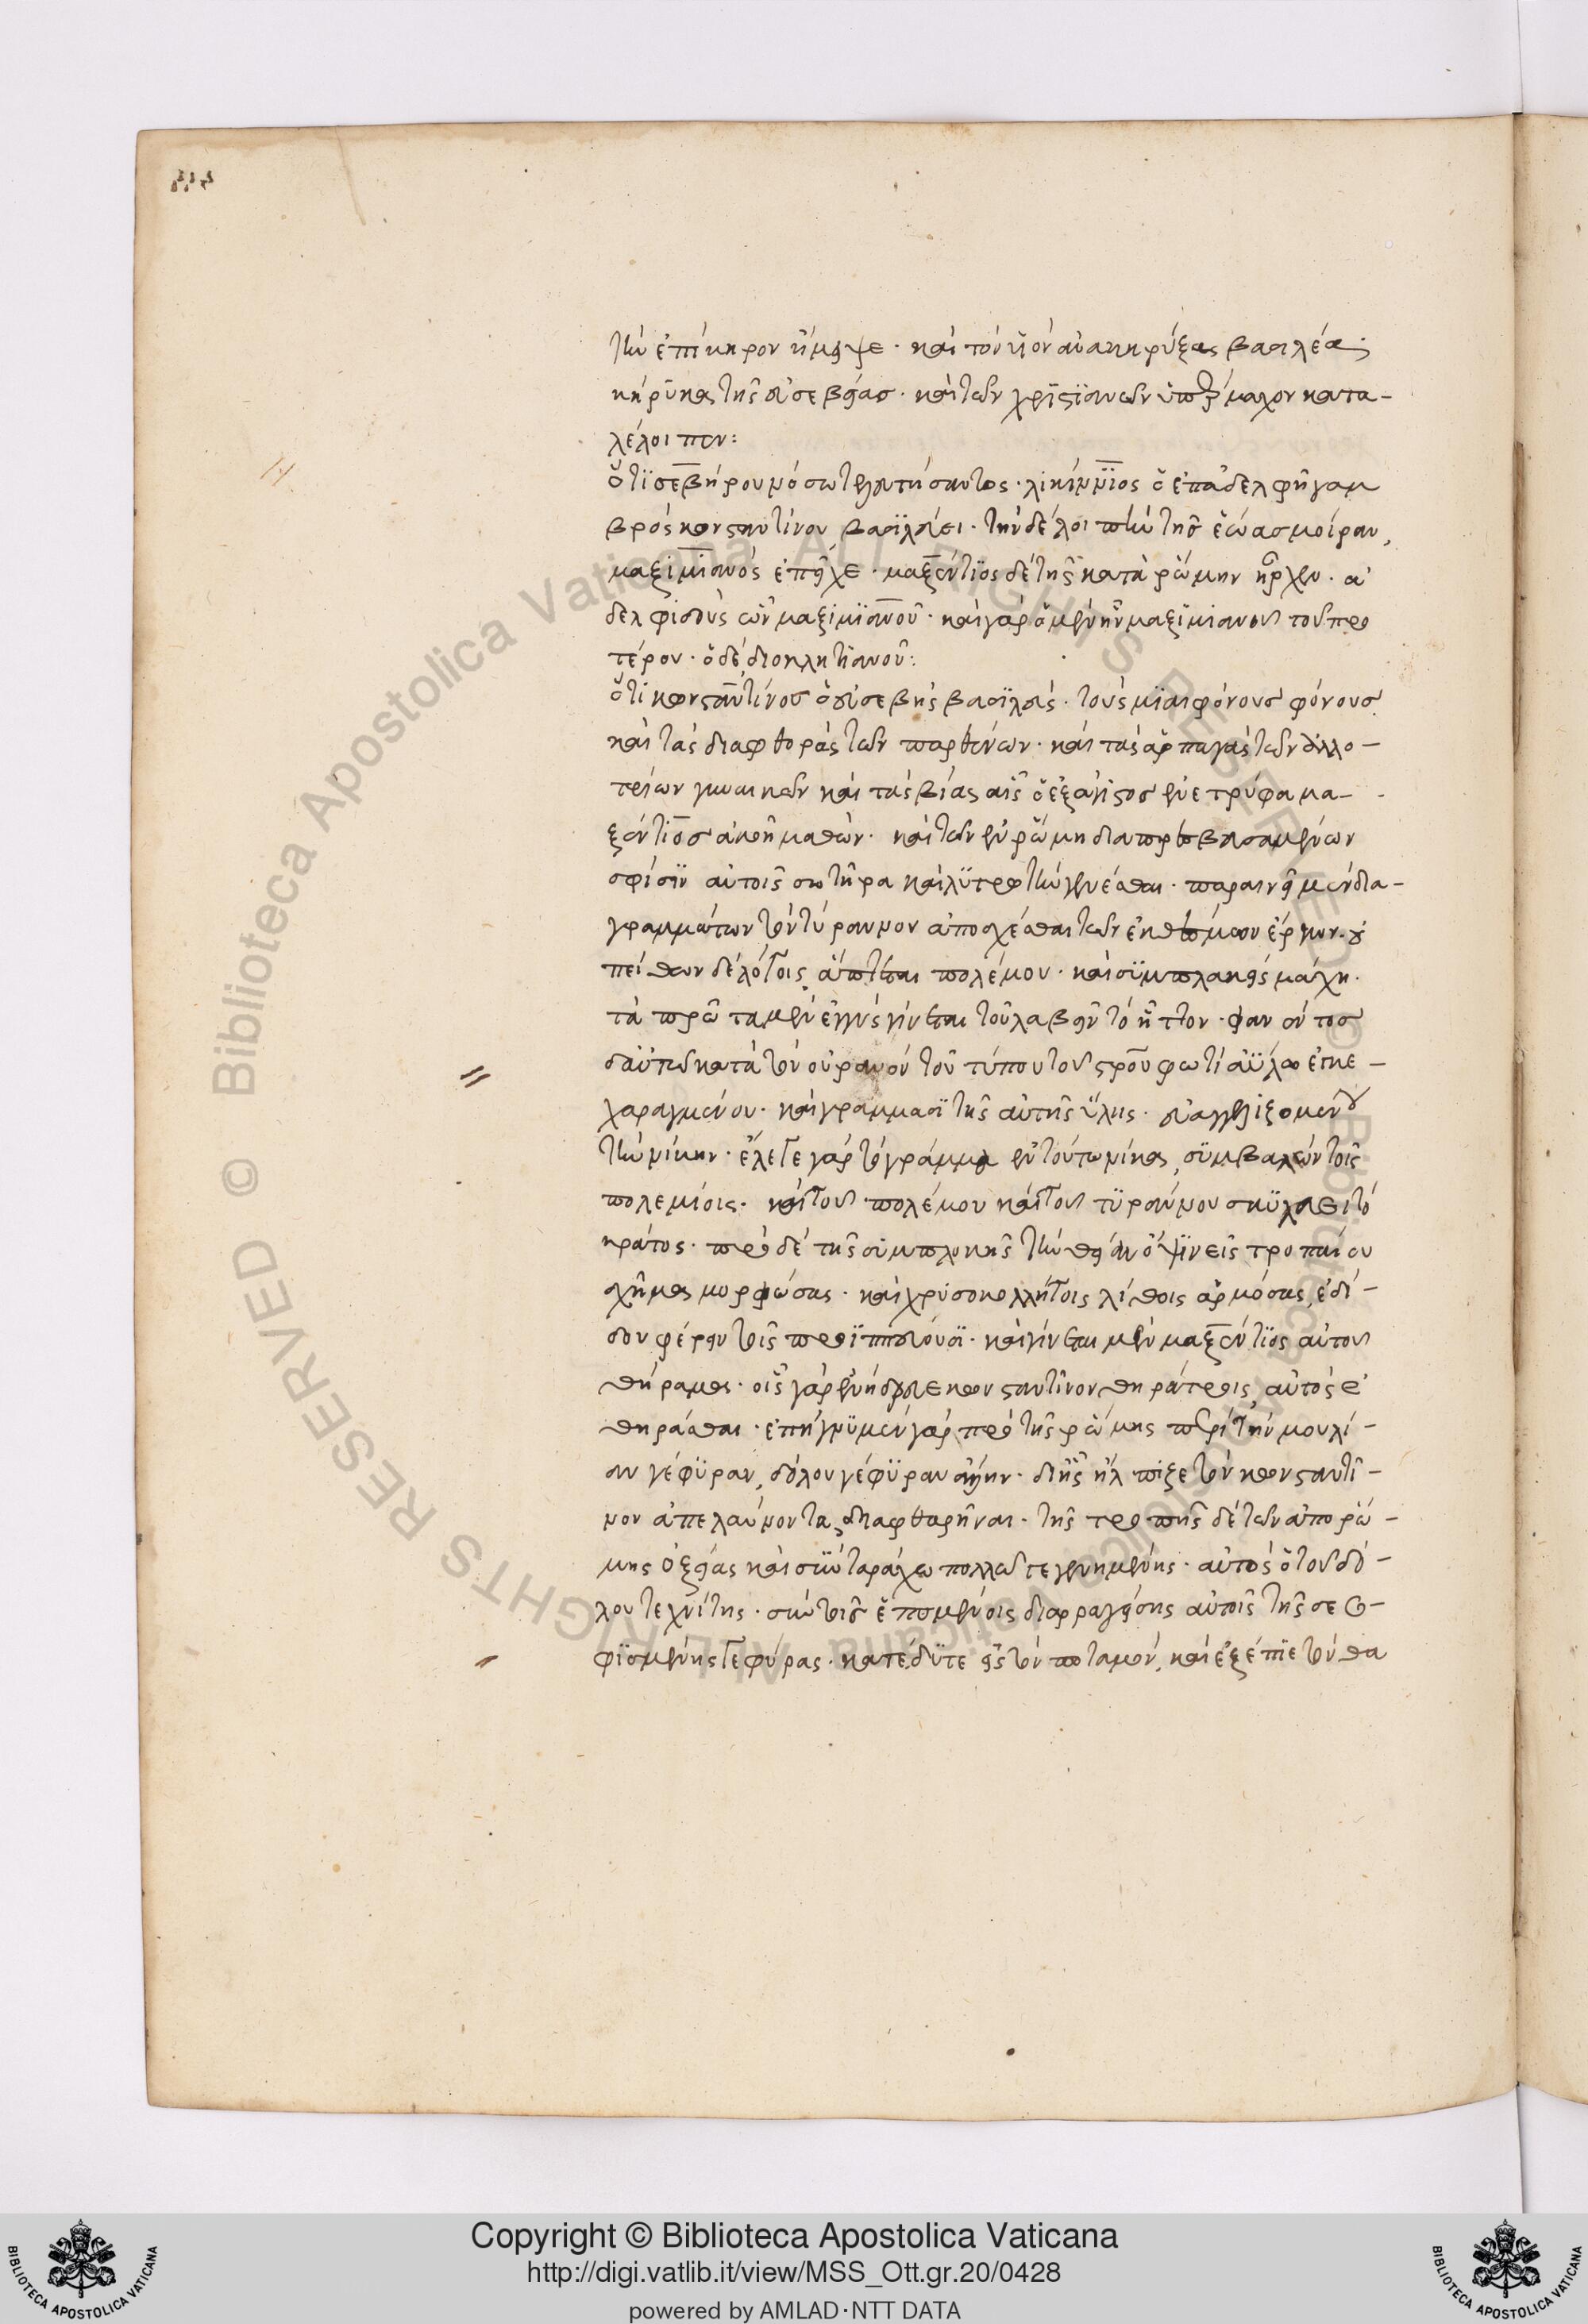 τὴν ἐπίκηρον ἤμειψε · καὶ τὸν υἱὸν ἀνακηρύξας βασιλέα ·
κήρυκα τῆς εὐσεβείας · καὶ τῶν χριστιανῶν ὑπέρμαχον κατα-
λέλοιπεν :
ὅτι σεβήρου μὲν τελευτήσαντος · λικίννιος ὁ ἐπ' ἀδελφῇ γαμ
βρὸς κωνσταντίνου βασιλεύει · τὴν δὲ λοιπὴν τῆς ἑώας μοίραν,
μαξιμιανὸς ἐπεῖχε · μαξέντιος δὲ τῆς κατὰ ῥώμην ἦρχεν · ἀ
δελφιδοὺς ὢν μαξιμιανοῦ · καὶ γὰρ ὁ μὲν ἦν μαξιμιανοῦ τοῦ προ
τέρου · ὁ δὲ διοκλητιανοῦ :
ὅτι κωνσταντῖνος ὁ εὐσεβὴς βασιλεὺς · τοὺς μιαιφόνους φόνους
καὶ τὰς διαφθορὰς τῶν παρθένων · καὶ τὰς ἁρπαγὰς τῶν ἀλλο-
τρίων γυναικῶν καὶ τὰς βίας αἷς ὁ ἐξάγιστος ἐνετρύφα μα-
ξέντιος ἀκοῇ μαθὼν · καὶ τῶν ἐν ῥώμῃ διαπρεσβευσαμένων
σφίσιν αὐτοῖς σωτῆρα καὶ λυτρωτὴν γενέσθαι · παραινεῖ μὲν δια-
γραμμάτων τὸν τύραννον ἀποσχέσθαι τῶν ἐκθέσμων ἔργων · οὐ
πείθων δὲ λόγοις ἅπτεται πολέμου · καὶ συμπλακεὶς μάχῃ ·
τὰ πρῶτα μὲν ἐγγὺς γίνεται τοῦ λαβεῖν τὸ ἧττον · φανέντος
δ' αὐτῷ κατὰ τὸν οὐρανὸν τοῦ τύπου τοῦ σταυροῦ φωτὶ ἀΰλῳ ἐγκε-
χαραγμένου · καὶ γράμμασι τῆς αὐτῆς ὕλης · εὐαγγελιζομένου
τὴν νίκην · ἔλεγε γὰρ τὸ γράμμα ἐν τούτῳ νίκα, συμβαλὼν τοῖς
πολεμίοις · καὶ τοῦ πολέμου καὶ τοῦ τυράννου σκυλεύει τὸ
κράτος · πρὸ δὲ τῆς συμπλοκῆς τὴν θείαν ὄψιν εἰς τροπαίου
σχῆμα μορφώσας · καὶ χρυσοκολλήτοις λίθοις ἁρμόσας, ἐδί-
δου φέρειν τοῖς προϊππεύουσι · καὶ γίνεται μὲν μαξέντιος αὐτοῦ
θήραμα · οἷς γὰρ ἐνήδρευε κωνσταντῖνον θηράτροις, αὐτὸς ἐ
θηρᾶσθαι · ἐπήγνυ μὲν γὰρ πρὸ τῆς ῥώμης περὶ τὴν μουλί-
αν γέφυραν, δόλου γέφυραν ἄλλην · δι' ἧς ἤλπιζε τὸν κωνσταντῖ-
νον ἀπελαύνοντα διαφθαρῆναι · τῆς τροπῆς δὲ τῶν ἀπὸ ῥώ-
μης ὀξείας καὶ σὺν ταράχῳ πολλῷ γεγενημένης · αὐτὸς ὁ τοῦ δό-
λου τεχνίτης · σὺν τοῖς ἑπομένοις διαρραγείσης αὐτοῖς τῆς σεσο-
φισμένης γεφύρας · κατέδυ τε εἰς τὸν ποταμὸν, καὶ ἐξέπιε τὸν θα
Copyright © Biblioteca Apostolica Vaticana
http://digi.vatlib.it/view/MSS_Ott.gr.20/0428
powered by AMLAD·NTT DATA